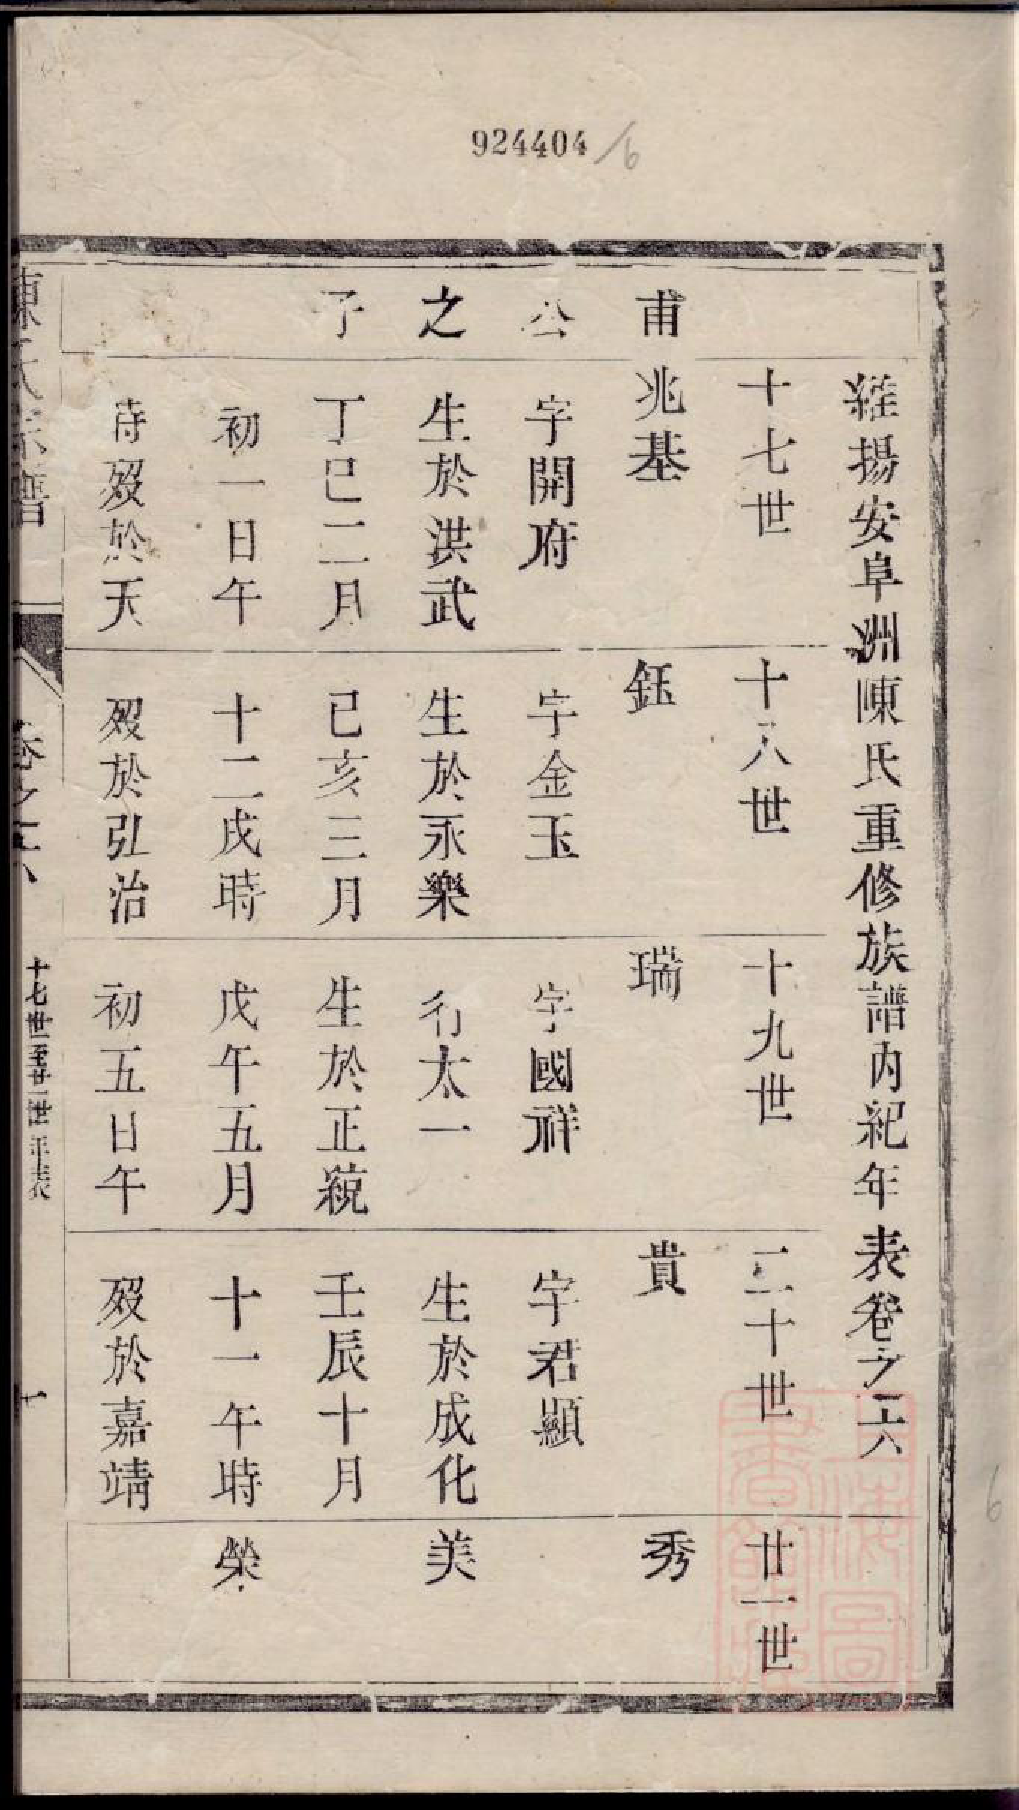 924404/6
維揚安阜洲陳氏重修族譜內紀年表卷之六
甫公之子
十七世
兆基
字開府
生於洪武
丁巳二月
初一日午
時歿於天
十八世
鈺
字金玉
生於永樂
己亥三月
十二戌時
歿於弘治
十九世
瑞
字國祥
行太一
生於正統
戊午五月
初五日午
二十世
貴
字君顯
生於成化
壬辰十月
十一午時
歿於嘉靖
廿一世
秀
美
榮
陳氏宗譜
卷之六
十七世至廿一世年表
一
6